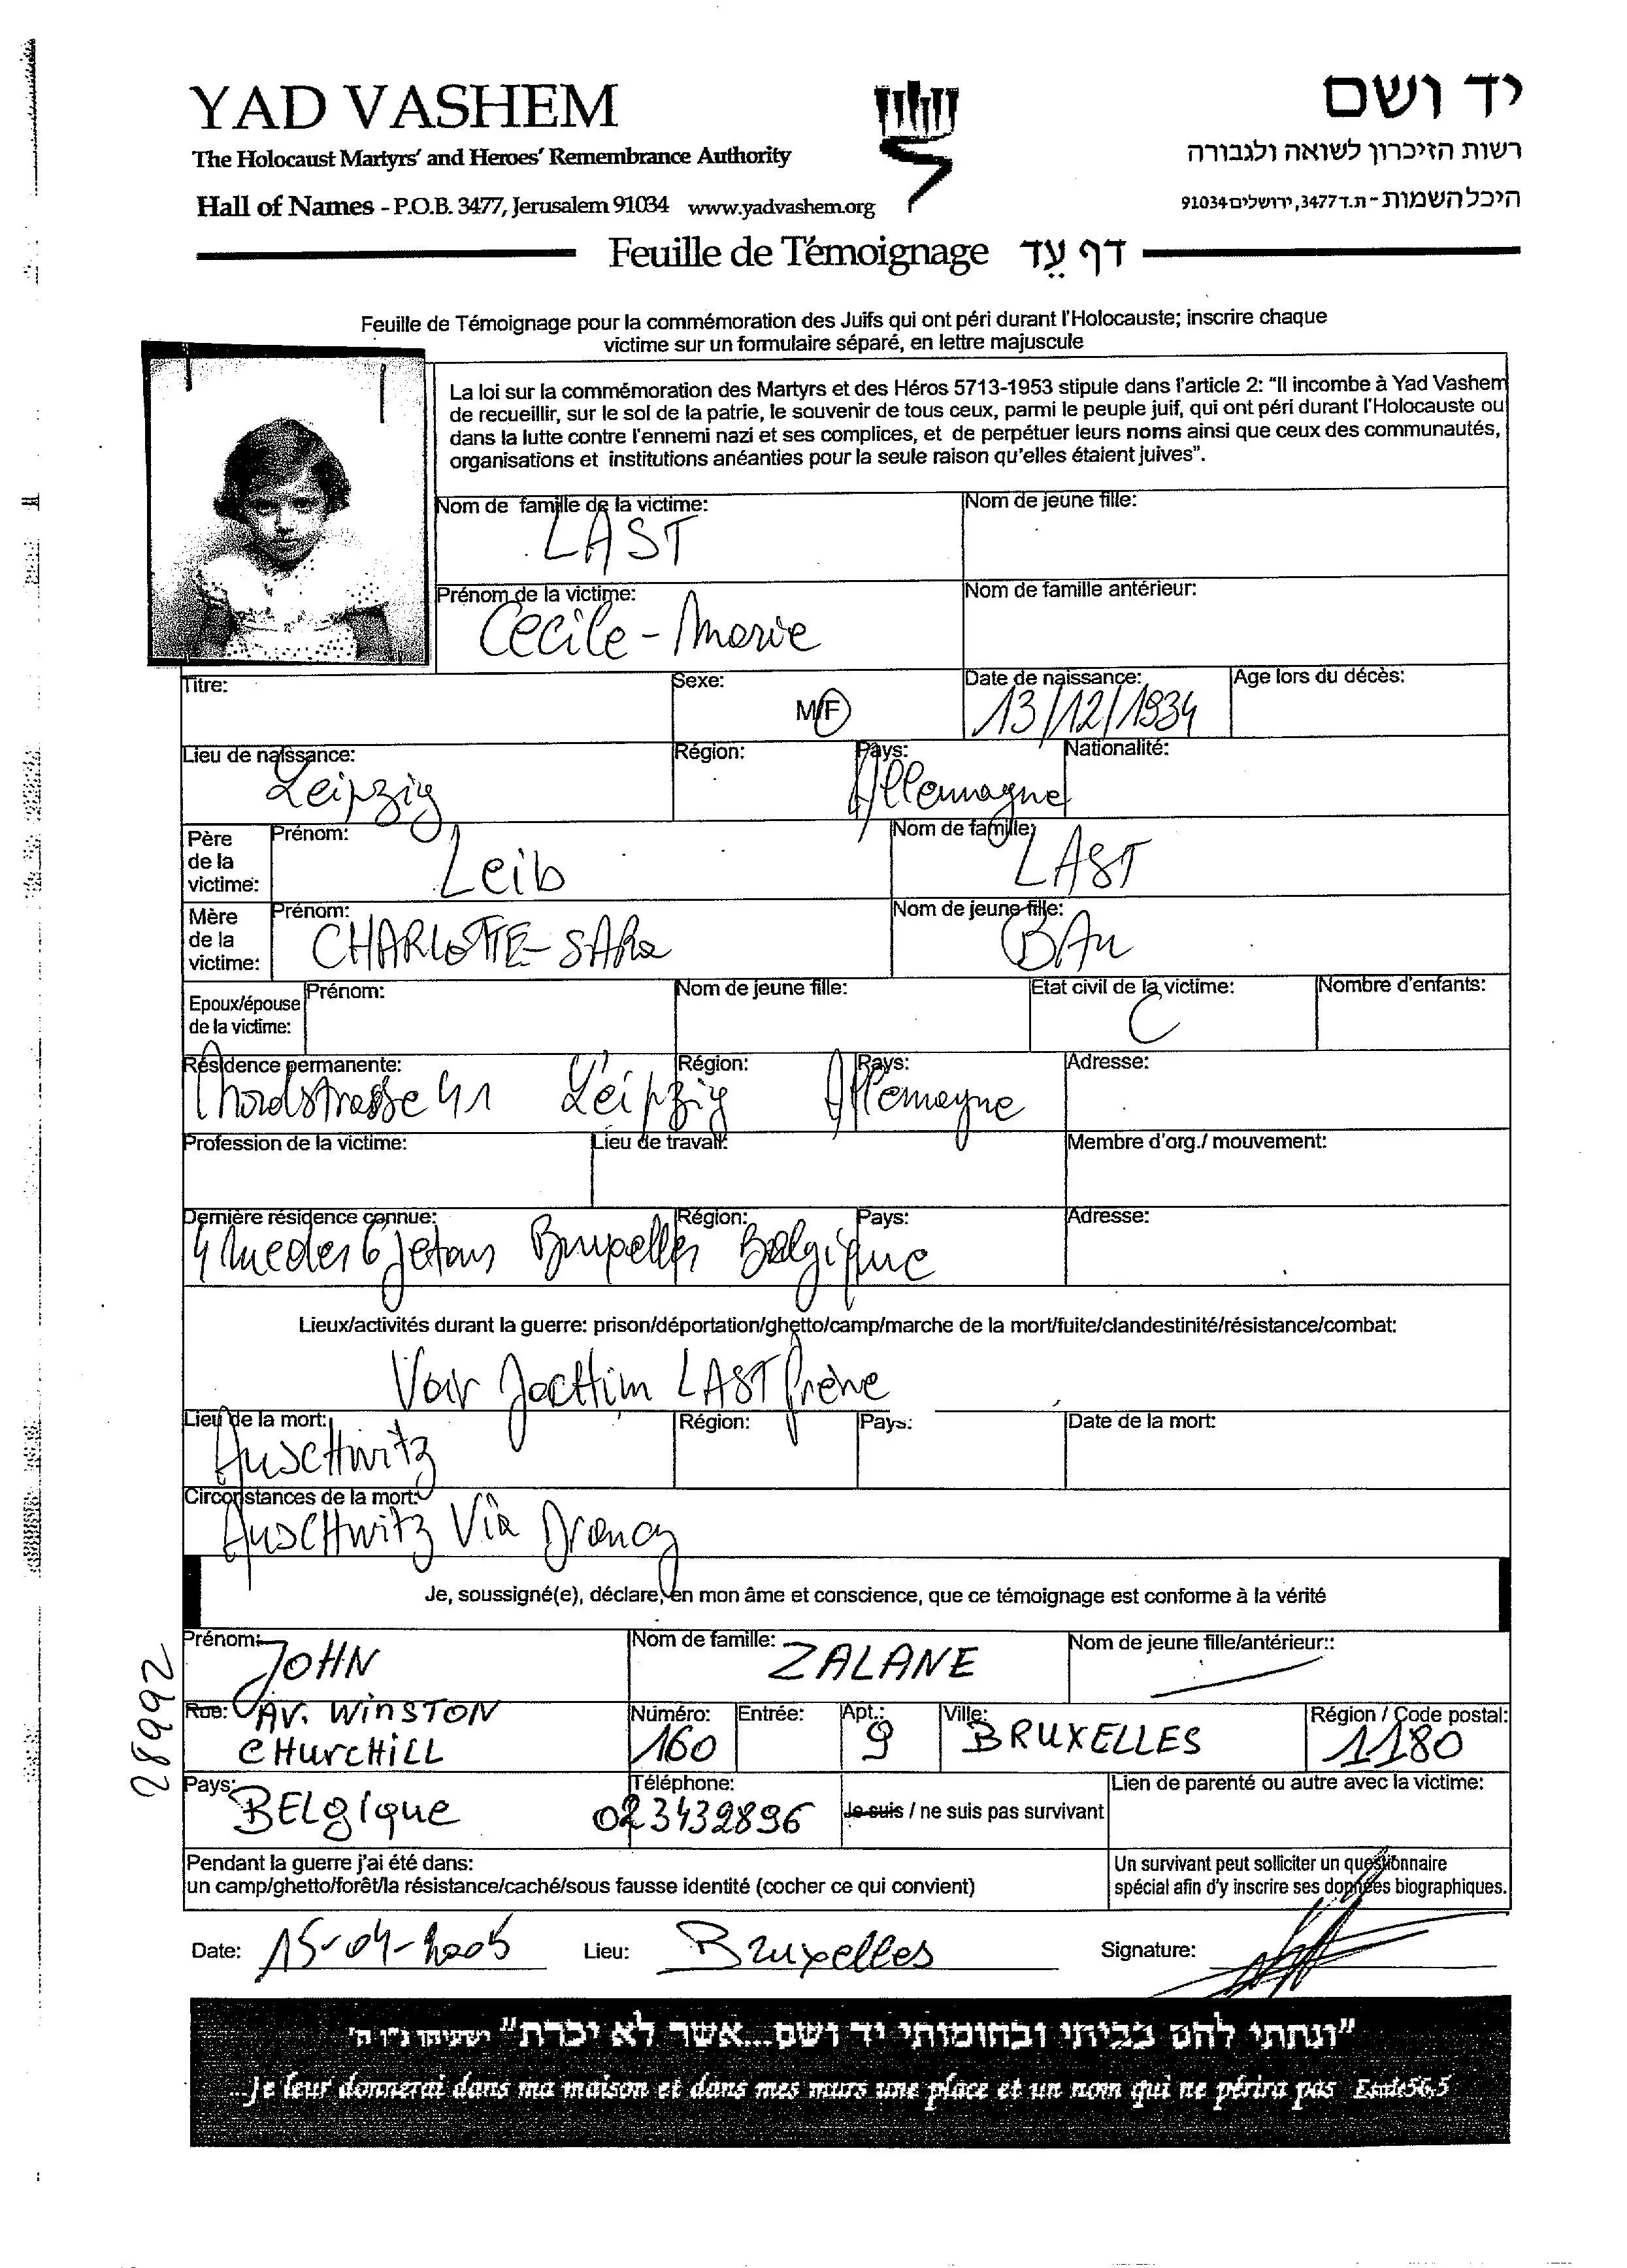 YAD VASHEM
יד ושם
The Holocaust Martyrs' and Heroes' Remembrance Authority
רשות הזיכרון לשואה ולגבורה
Hall of Names - P.O.B. 3477, Jerusalem 91034 www.yadvashem.org
היכל השמות - ת.ד 3477, ירושלים 91034
Feuille de Témoignage דף עֵד
Feuille de Témoignage pour la commémoration des Juifs qui ont péri durant l'Holocauste; inscrire chaque
victime sur un formulaire séparé, en lettre majuscule
La loi sur la commémoration des Martyrs et des Héros 5713-1953 stipule dans l'article 2: "Il incombe à Yad Vashem
de recueillir, sur le sol de la patrie, le souvenir de tous ceux, parmi le peuple juif, qui ont péri durant l'Holocauste ou
dans la lutte contre l'ennemi nazi et ses complices, et de perpétuer leurs noms ainsi que ceux des communautés,
organisations et institutions anéanties pour la seule raison qu'elles étaient juives".
Nom de famille de la victime: Nom de jeune fille:
LAST
Prénom de la victime: Nom de famille antérieur:
Cecile-Marie
Titre: Sexe: Date de naissance: Age lors du décès:
M/F 13/12/1934
Lieu de naissance: Région: Pays: Nationalité:
Leipzig Allemagne
Père de la victime: Prénom: Nom de famille:
Leib LAST
Mère de la victime: Prénom: Nom de jeune fille:
CHARLOTTE-SARa BAu
Epoux/épouse de la victime: Prénom: Nom de jeune fille: Etat civil de la victime: Nombre d'enfants:
C
Résidence permanente: Région: Pays: Adresse:
Nordstrasse 41 Leipzig Allemagne
Profession de la victime: Lieu de travail: Membre d'org./ mouvement:
Dernière résidence connue: Région: Pays: Adresse:
4 Rue des 6 Jetons Bruxelles Belgique
Lieux/activités durant la guerre: prison/déportation/ghetto/camp/marche de la mort/fuite/clandestinité/résistance/combat:
Voir JocHim LAST frère
Lieu de la mort: Région: Pays: Date de la mort:
AuscHwitz
Circonstances de la mort:
AuscHwitz Via Drancy
Je, soussigné(e), déclare, en mon âme et conscience, que ce témoignage est conforme à la vérité
Prénom: Nom de famille: Nom de jeune fille/antérieur::
JOHN ZALANE
28992
Rue: Numéro: Entrée: Apt.: Ville: Région / Code postal:
AV. WINSTON
CHurcHiLL 160 9 BRUXELLES 1180
Pays: Téléphone: Lien de parenté ou autre avec la victime:
BELgique 023432896 Je suis / ne suis pas survivant
Pendant la guerre j'ai été dans:
un camp/ghetto/forêt/la résistance/caché/sous fausse identité (cocher ce qui convient)
Un survivant peut solliciter un questionnaire
spécial afin d'y inscrire ses données biographiques.
Date: 15-04-2005 Lieu: Bruxelles Signature:
"ונתתי להם בביתי ובחומותי יד ושם...אשר לא יכרת" ישעיהו נ"ו ה'
...Je leur donnerai dans ma maison et dans mes murs une place et un nom qui ne périra pas Esaïe 56,5